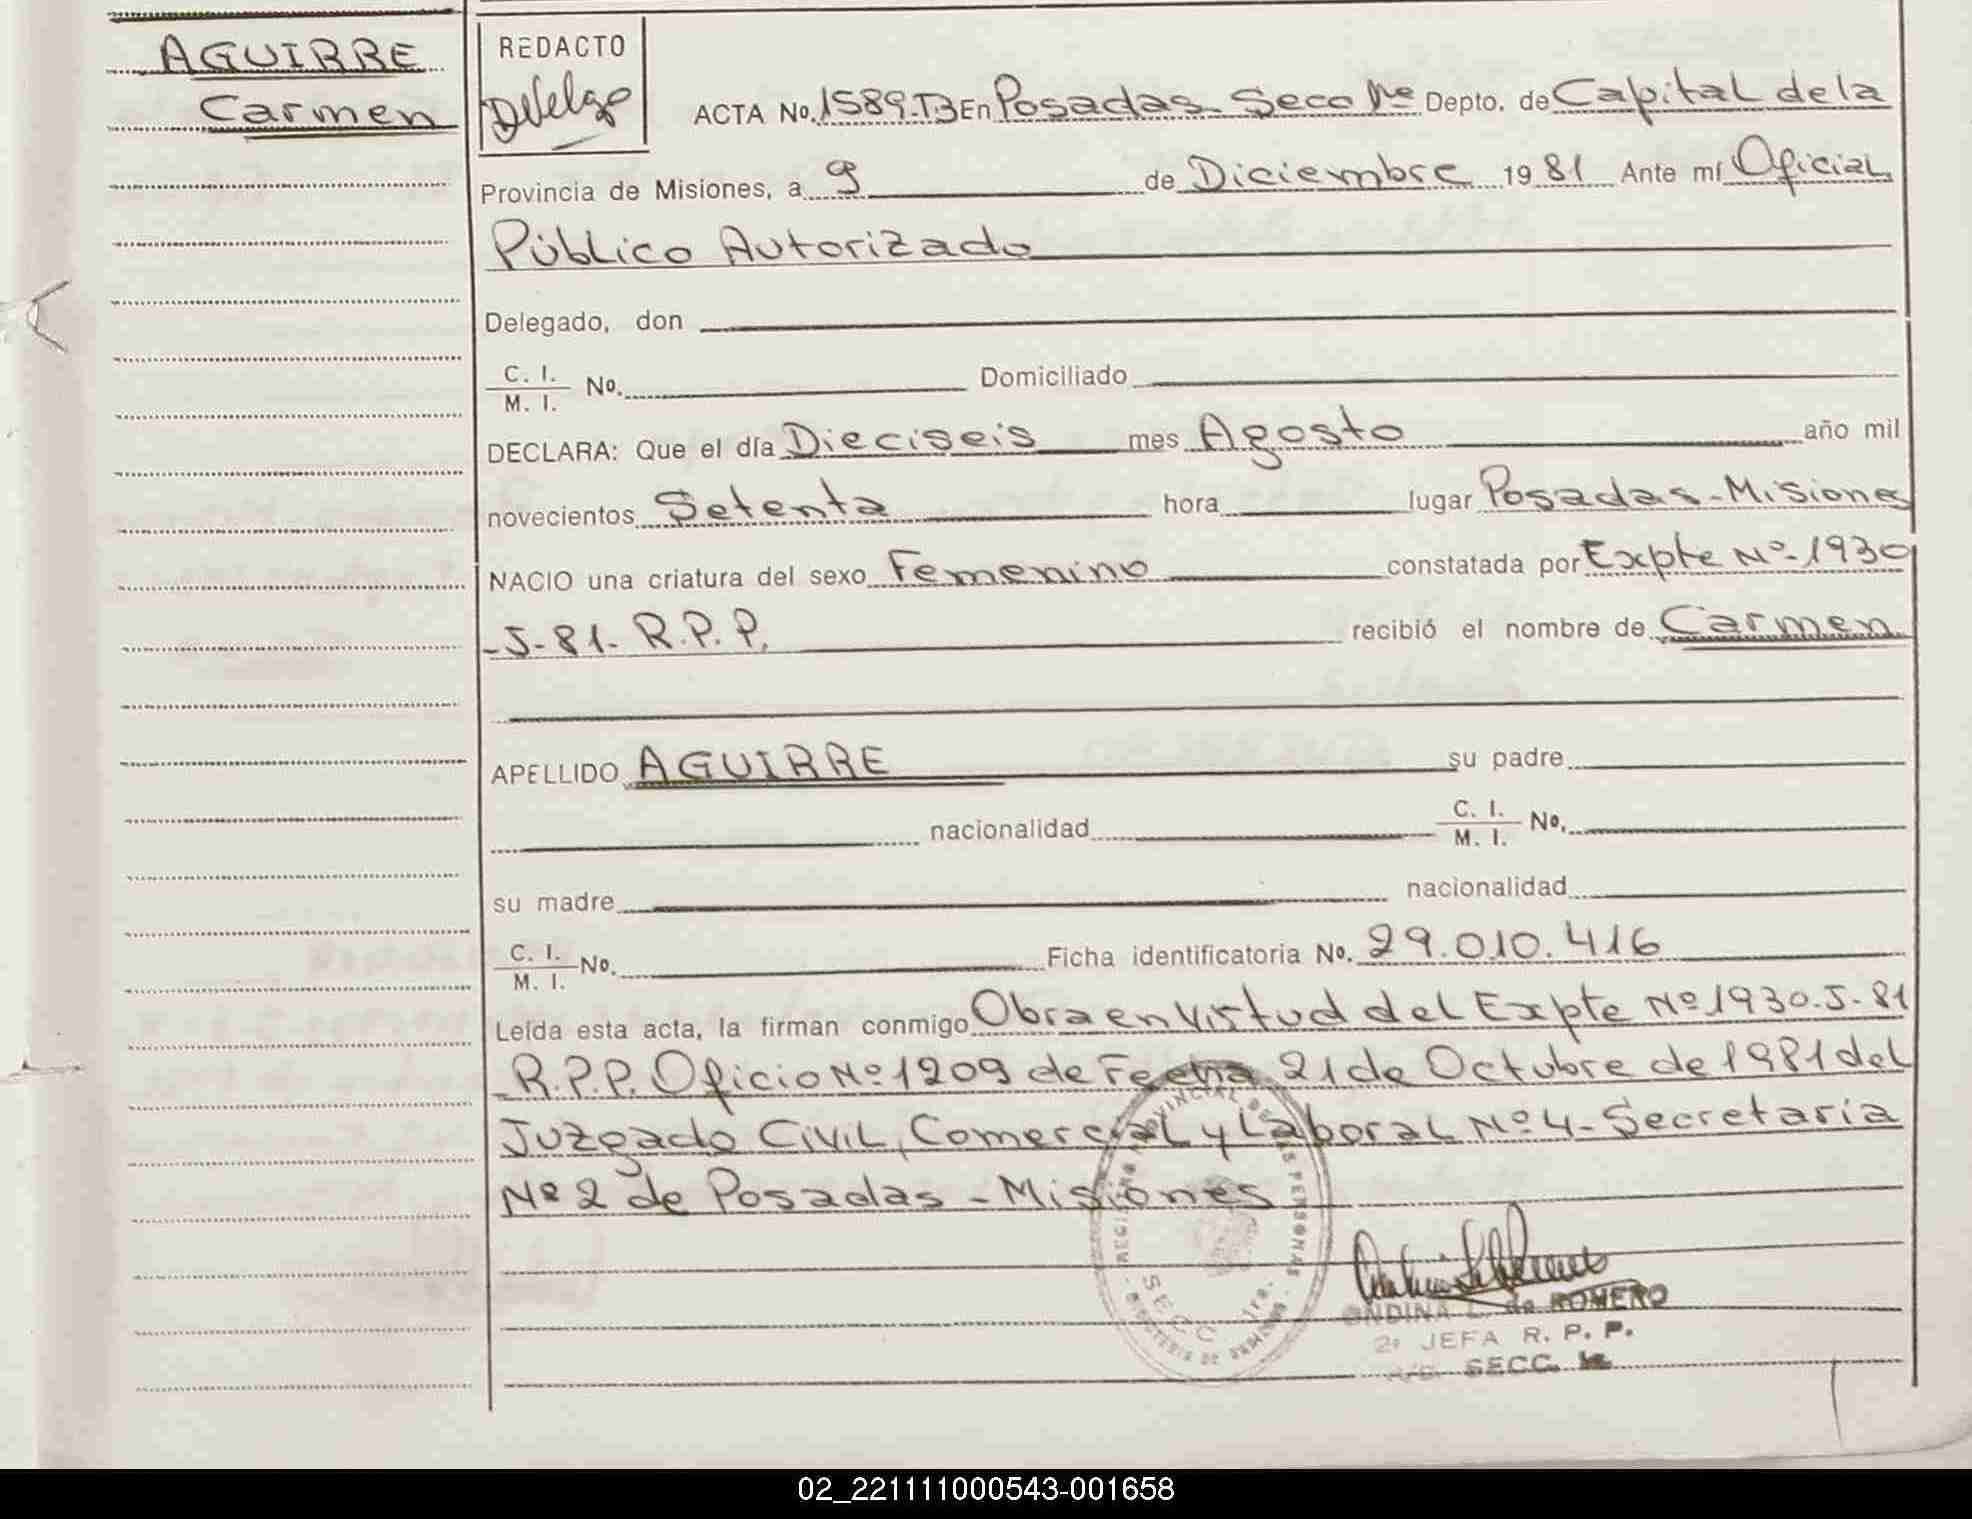 AGUIRRE
Carmen
REDACTO
ACTA No. 1589-TB En Posadas Secc 1ra Depto. de Capital de la
Provincia de Misiones, a 9 de Diciembre 1981 Ante mí Oficial
Público Autorizado
Delegado, don
C. I.
M. I. No. Domiciliado
DECLARA: Que el día Dieciseis mes Agosto año mil
novecientos Setenta hora lugar Posadas-Misiones
NACIO una criatura del sexo Femenino constatada por Expte Nº-1930
-J-81- R.P.P. recibió el nombre de Carmen
APELLIDO AGUIRRE su padre
nacionalidad C. I.
M. I. No.
su madre nacionalidad
C. I.
M. I. No. Ficha identificatoria No. 29.010.416
Leída esta acta, la firman conmigo Obra en Virtud del Expte Nº 1930-J-81
R.P.P. Oficio Nº 1209 de Fecha 21 de Octubre de 1981 del
Juzgado Civil, Comercial y Laboral Nº 4-Secretaría
Nº 2 de Posadas - Misiones
REGISTRO PROVINCIAL DE LAS PERSONAS
SECC. 1ra.
ONDINA L. de ROMERO
2ª JEFA R. P. P.
SECC. 1a
02_221111000543-001658